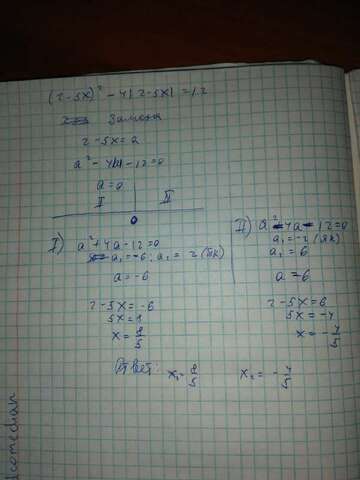 (2-5x)² - 4|2-5x| = 12
Замена
2-5x=a
a² - 4|a| - 12=0
a=0
I II
0
I) a²+4a-12=0
a₁=-6; a₂=2 (пк)
a=-6
2-5x=-6
5x=8
x=8/5
II) a²-4a-12=0
a₁=-2 (пк)
a₂=6
a=6
2-5x=6
5x=-4
x=-4/5
Ответ: x₁=8/5 x₂=-4/5
dcomedian